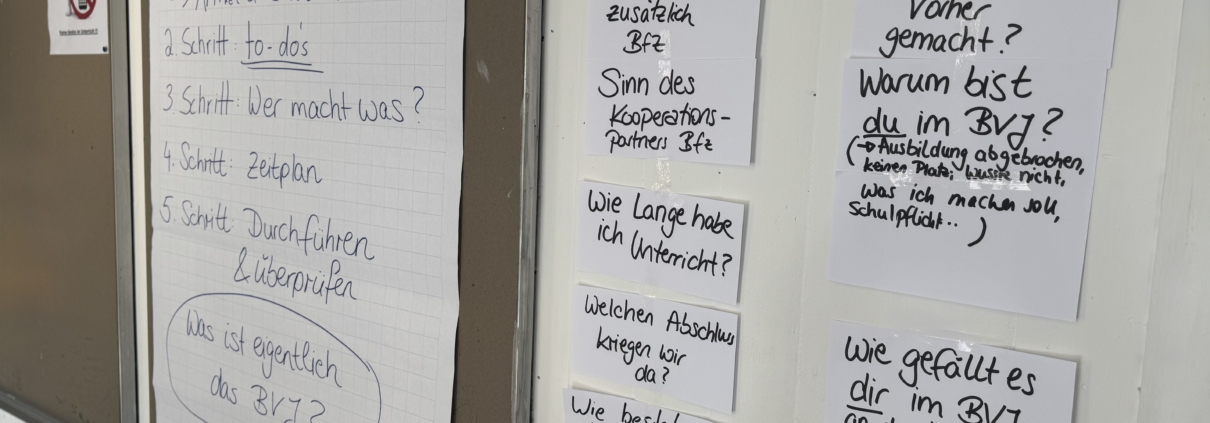 2. Schritt: to-do's
3. Schritt: Wer macht was?
4. Schritt: Zeitplan
5. Schritt: Durchführen
& überprüfen
Was ist eigentlich
das BVJ?
zusätzlich
BfZ
Sinn des
Kooperations-
partners Bfz
Wie Lange habe
ich Unterricht?
Welchen Abschluss
kriegen wir
da?
Wie
Vorher
gemacht?
Warum bist
du im BVJ?
(→ Ausbildung abgebrochen,
keinen Platz; wusste nicht,
was ich machen soll,
Schulpflicht..)
Wie gefällt es
dir im BVJ